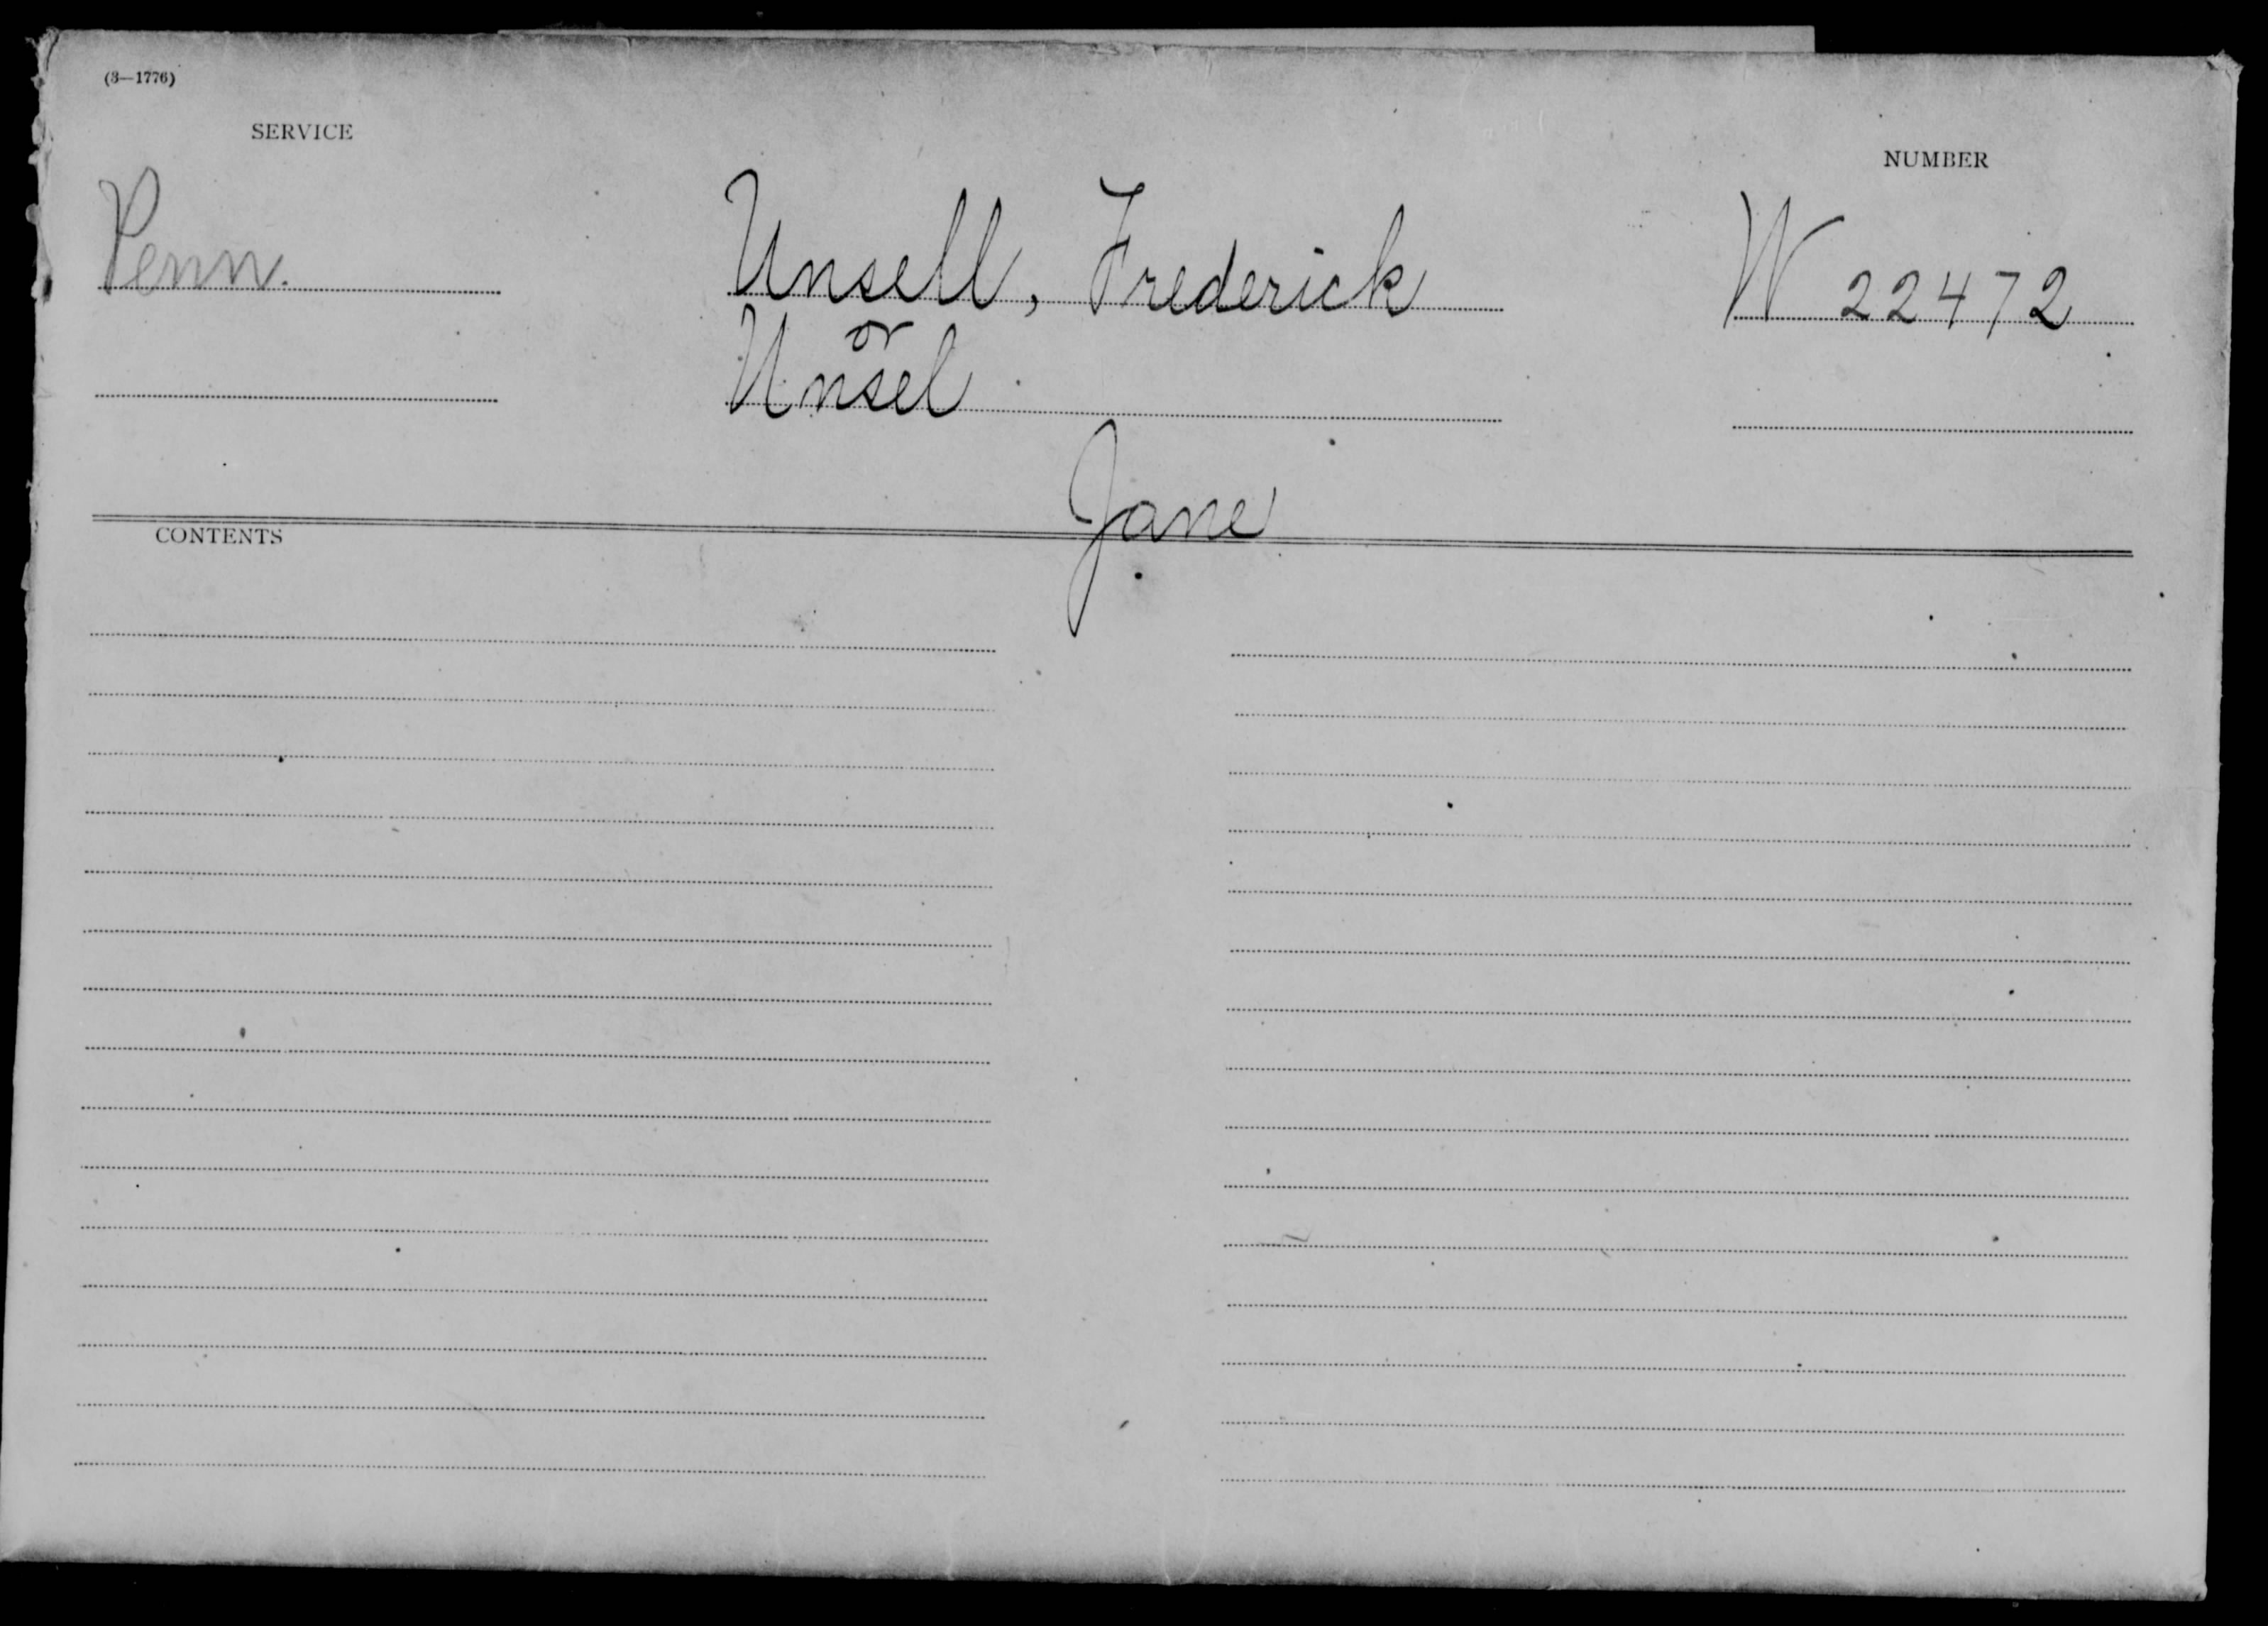 (3—1776)
SERVICE
NUMBER
Penn.
Unsell, Frederick
W 22472
or
Unsel
Jane
CONTENTS